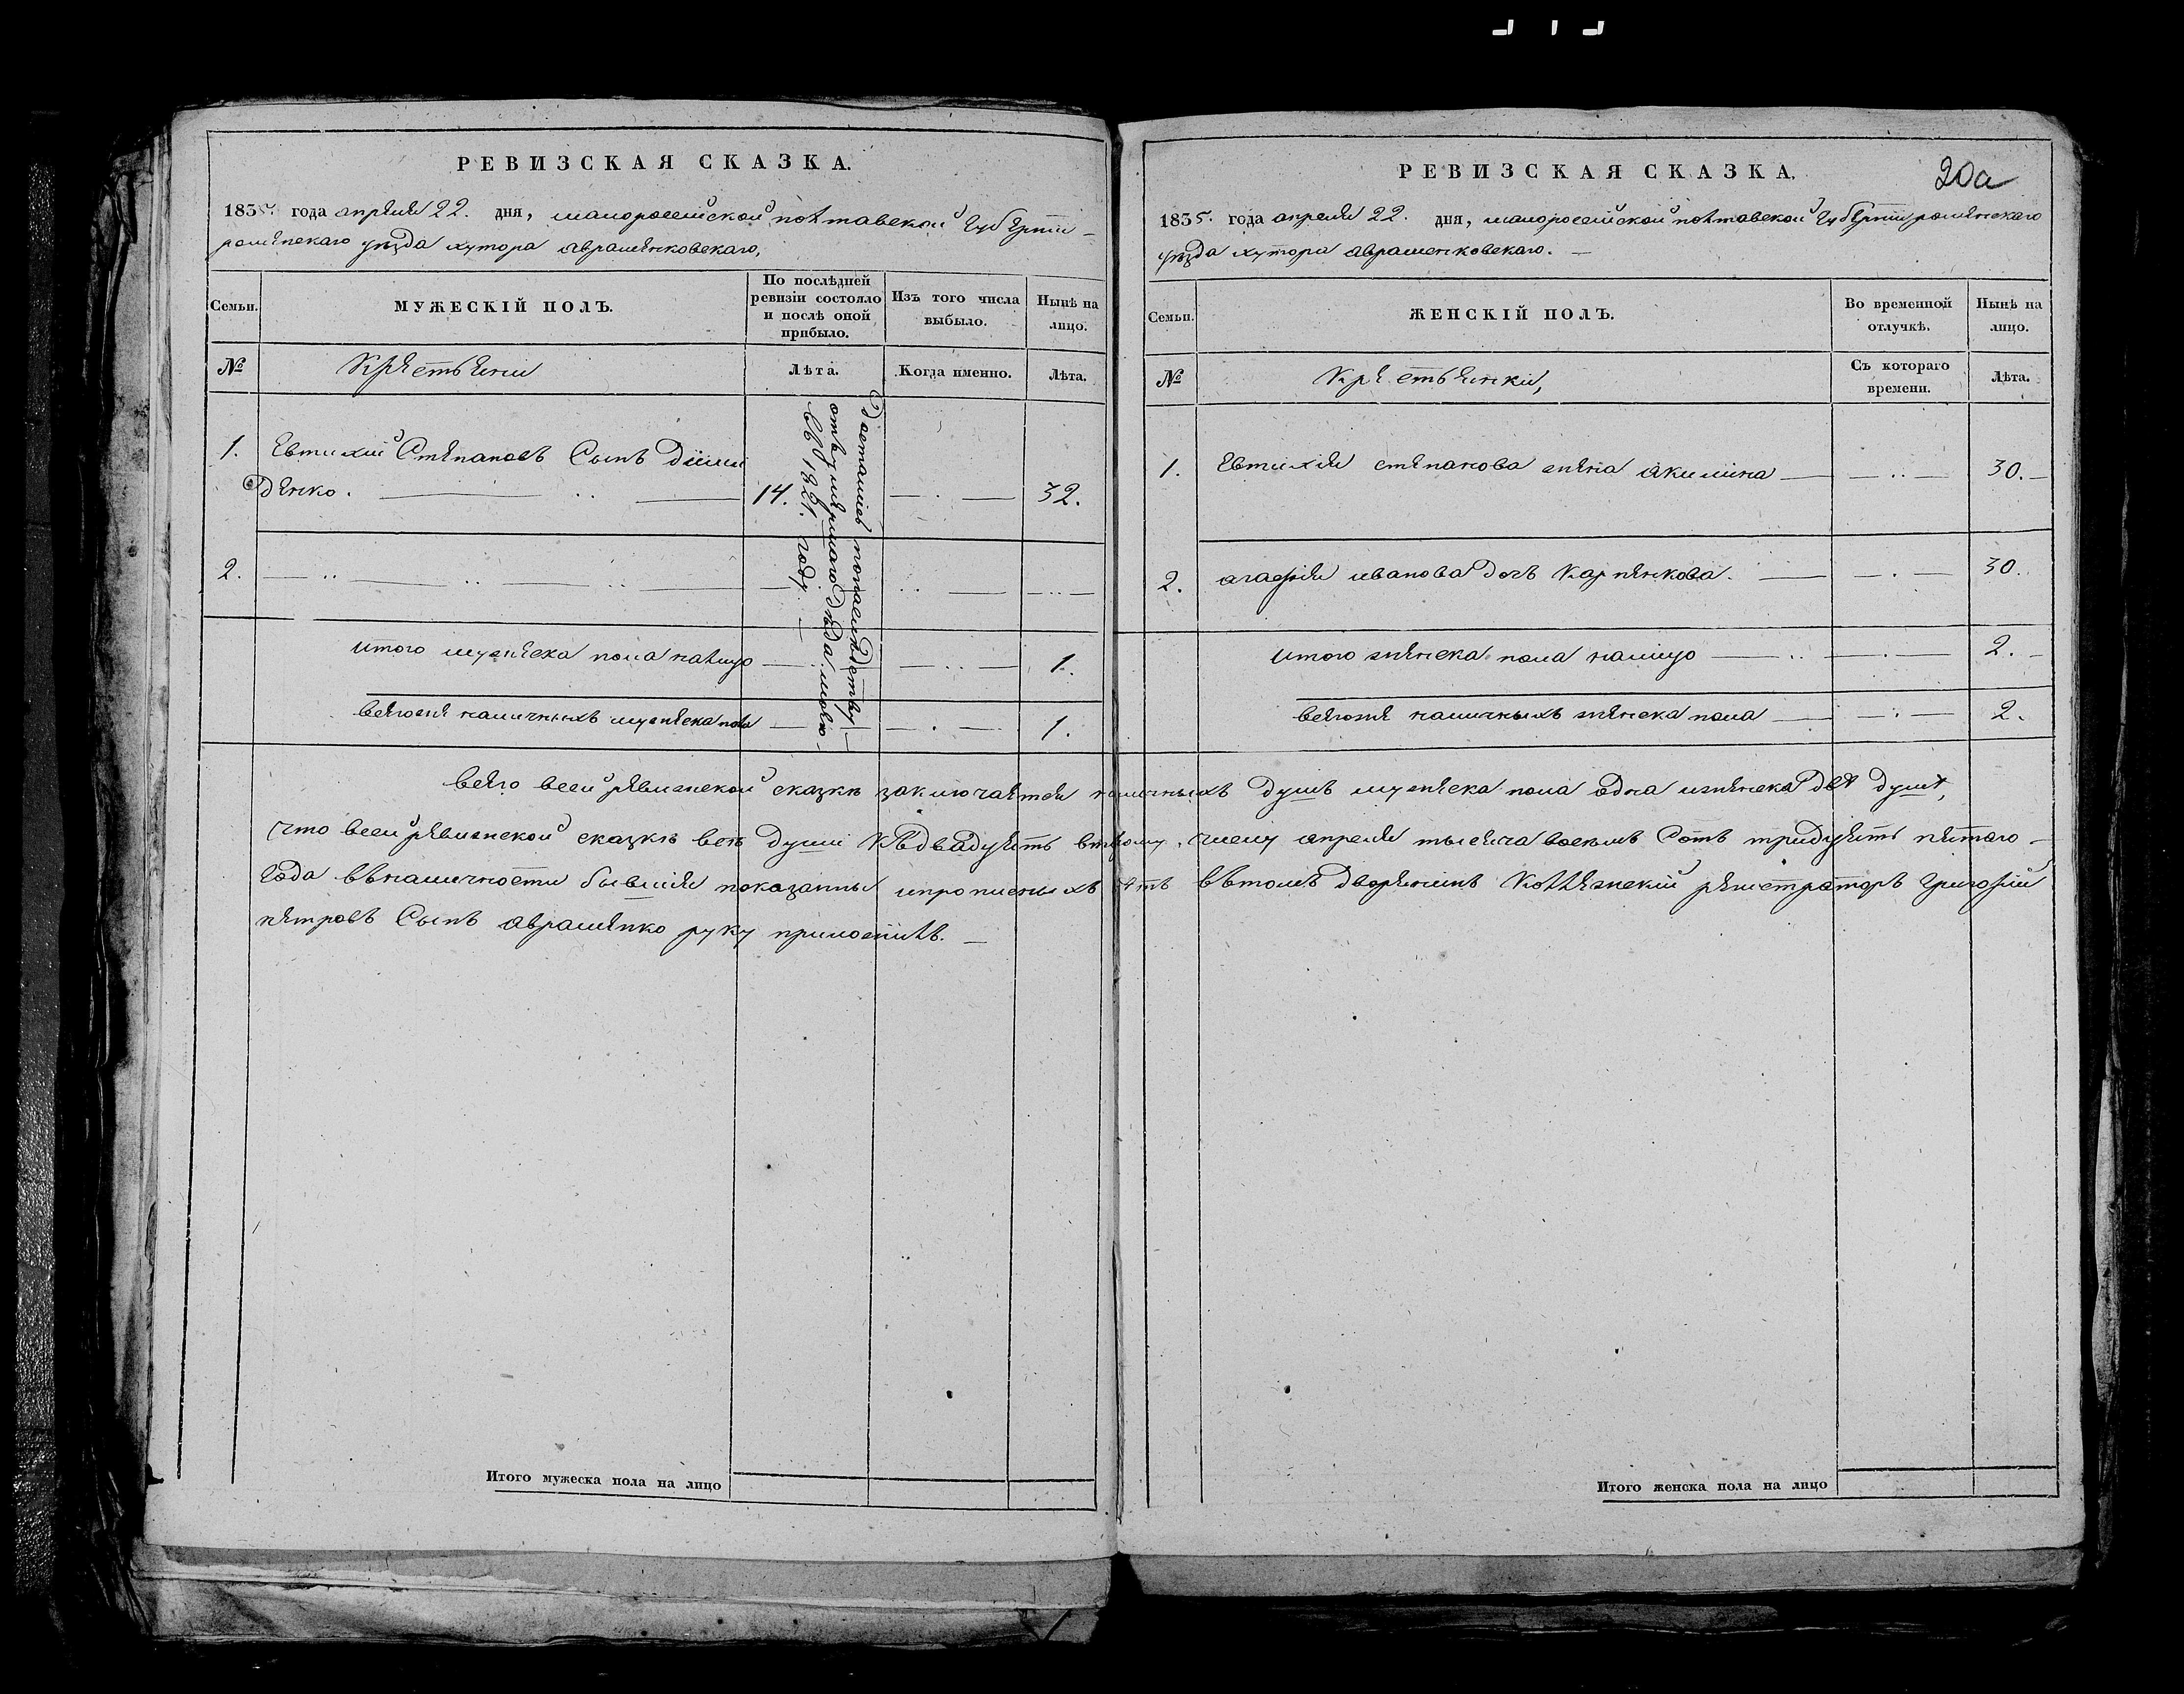 РЕВИЗСКАЯ СКАЗКА.
1835. года апреля 22. дня, малоросейской полтавской Губернѣи
роменскаго уѣзда хутора авраменковскаго,
Семьи.
МУЖЕСКІЙ ПОЛЪ.
По послѣдней ревизіи состояло и послѣ оной прибыло.
Изъ того числа выбыло.
Нынѣ на лицо.
№
Крестьяни
Лѣта.
Когда именно.
Лѣта.
1. Евтихий Степановъ Сынъ
денко. 14. 32.
Доставшсь понаследству
отъ умершаго деда моего
въ 1821. году.
2.
итого мужеска пола налицо 1.
всегоже наличныхъ мужеска пола 1.
РЕВИЗСКАЯ СКАЗКА.
20а
1835. года апреля 22. дня, малоросейской полтавской Губернѣи роменскаго
уѣзда хутора авраменковскаго.
Семьи.
ЖЕНСКІЙ ПОЛЪ.
Во временной отлучкѣ.
Нынѣ на лицо.
№
Крестьянки,
Съ котораго времени.
Лѣта.
1. Евтихия степанова жена акилина 30.
2. агафия иванова дочь Карпенкова. 30.
итого женска пола налицо 2.
всегоже наличныхъ женска пола 2.
всего всей ревизской сказки заключается наличныхъ душъ мужеска пола одна иженска две души,
что всей ревизской сказке все души Къ двадцеть второму числу апреля тысяча восемъ Сотъ тридцеть пятого
Года въ наличности бывшия показанны ипрописныхъ нетъ въ томъ дворенинъ Коллежский регистраторъ григорий
петровъ Сынъ авраменко руку приложилъ.
Итого мужеска пола на лицо
Итого женска пола на лицо